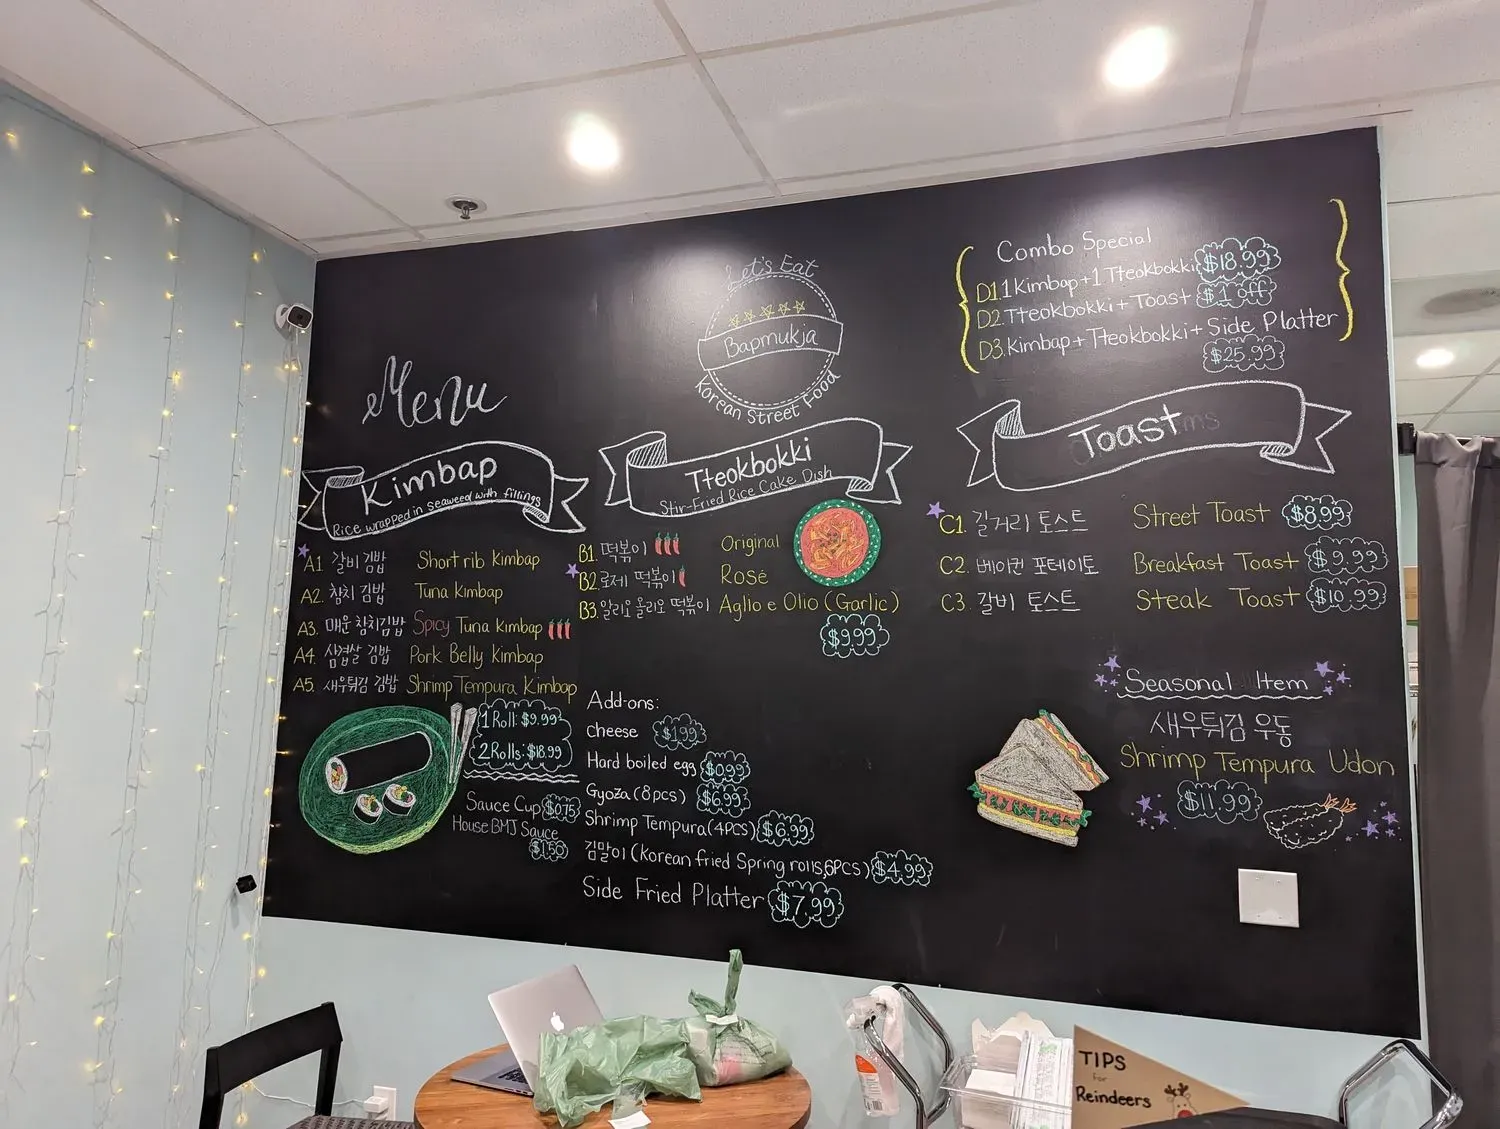 Menu
Let's Eat
Bapmukja
Korean Street Food
Combo Special
D1. 1 Kimbap + 1 Tteokbokki $18.99
D2. Tteokbokki + Toast $1 off
D3. Kimbap + Tteokbokki + Side Platter
$25.99
Kimbap
Rice wrapped in seaweed with fillings
A1 갈비 김밥 Short rib Kimbap
A2. 참치 김밥 Tuna Kimbap
A3. 매운 참치김밥 Spicy Tuna Kimbap
A4. 삼겹살 김밥 Pork Belly Kimbap
A5. 새우튀김 김밥 Shrimp Tempura Kimbap
1 Roll: $9.99
2 Rolls: $18.99
Sauce Cup $0.75
House BMJ Sauce
$1.50
Tteokbokki
Stir-Fried Rice Cake Dish
B1. 떡볶이 Original
B2. 로제 떡볶이 Rosé
B3. 알리오 올리오 떡볶이 Aglio e Olio (Garlic)
$9.99
Add-ons:
Cheese $1.99
Hard boiled egg $0.99
Gyoza (8pcs) $6.99
Shrimp Tempura (4pcs) $6.99
김말이 (Korean fried Spring rolls, 6PCS) $4.99
Side Fried Platter $7.99
Toast
C1. 길거리 토스트 Street Toast $8.99
C2. 베이컨 포테이토 Breakfast Toast $9.99
C3. 갈비 토스트 Steak Toast $10.99
Seasonal Item
새우튀김 우동
Shrimp Tempura Udon
$11.99
TIPS
for
Reindeers